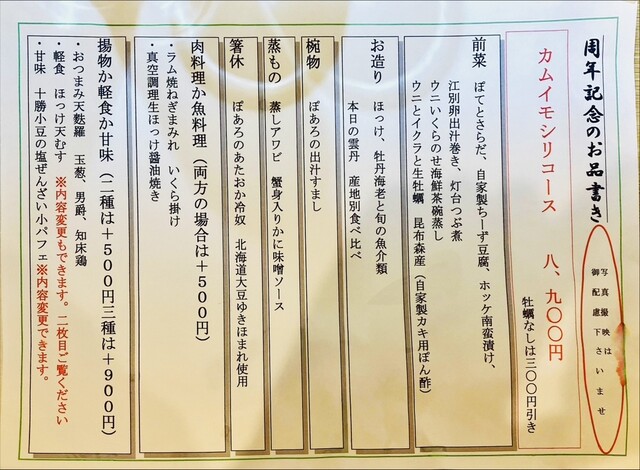 周年記念のお品書き
写真撮影は
御配慮下さいませ
カムイモシリコース 八、九〇〇円
牡蠣なしは三〇〇円引き
前菜 ぽてとさらだ、自家製ちーず豆腐、ホッケ南蛮漬け、
江別卵出汁巻き、灯台つぶ煮
ウニいくらのせ海鮮茶碗蒸し
ウニとイクラと生牡蠣 昆布森産（自家製カキ用ぽん酢）
お造り ほっけ、牡丹海老と旬の魚介類
本日の雲丹 産地別食べ比べ
椀物 ぽあろの出汁すまし
蒸もの 蒸しアワビ 蟹身入りかに味噌ソース
箸休 ぽあろのあたおか冷奴 北海道大豆ゆきほまれ使用
肉料理か魚料理（両方の場合は＋５００円）
・ラム焼ねぎまみれ いくら掛け
・真空調理生ほっけ醤油焼き
揚物か軽食か甘味（二種は＋５００円三種は＋９００円）
・おつまみ天麩羅 玉葱、男爵、知床鶏
・軽食 ほっけ天むす ※内容変更もできます。二枚目ご覧ください
・甘味 十勝小豆の塩ぜんざい小パフェ※内容変更できます。